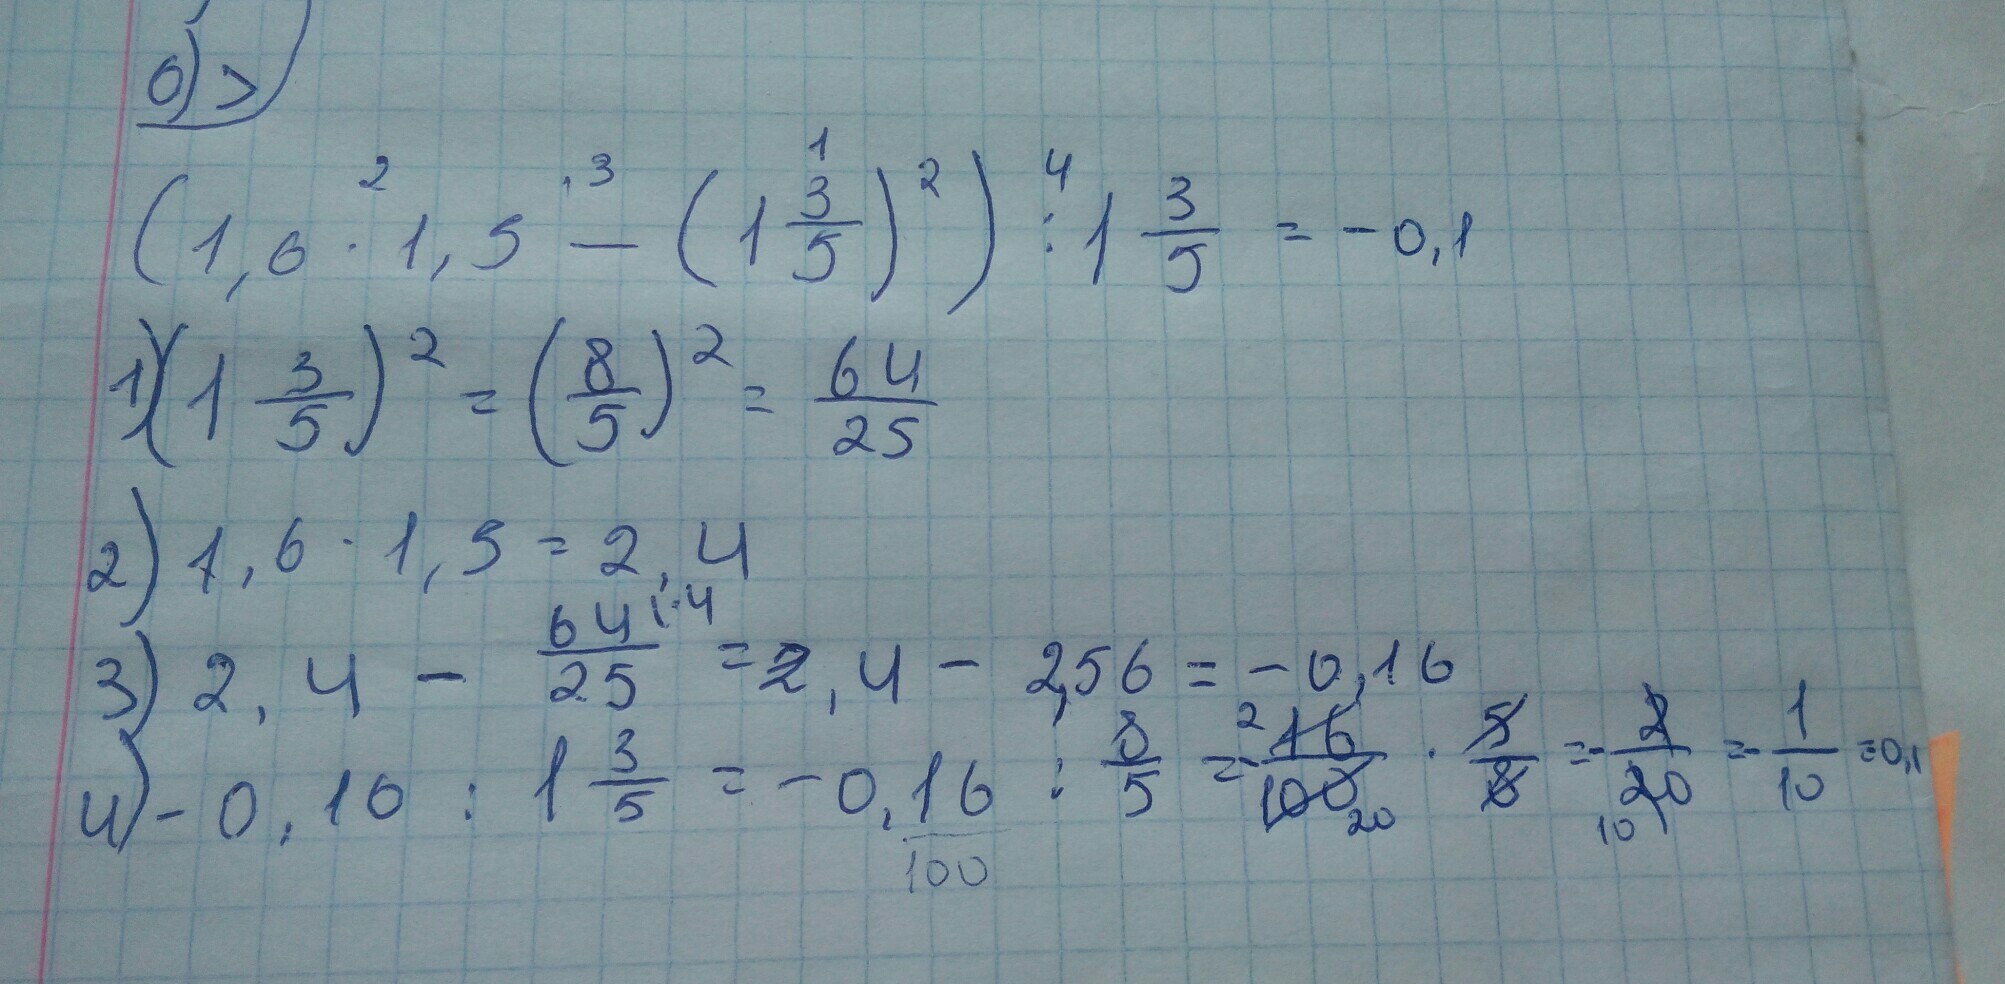 б)>
(1,6 · 1,5 — (1 3/5)²) : 1 3/5 = -0,1
1)(1 3/5)² = (8/5)² = 64/25
2) 1,6 · 1,5 = 2,4
3) 2,4 - 64/25 |·4 = 2,4 - 2,56 = -0,16
4) -0,16 : 1 3/5 = -0,16 : 8/5 = -16/100 · 5/8 = -2/20 = -1/10 = 0,1
100